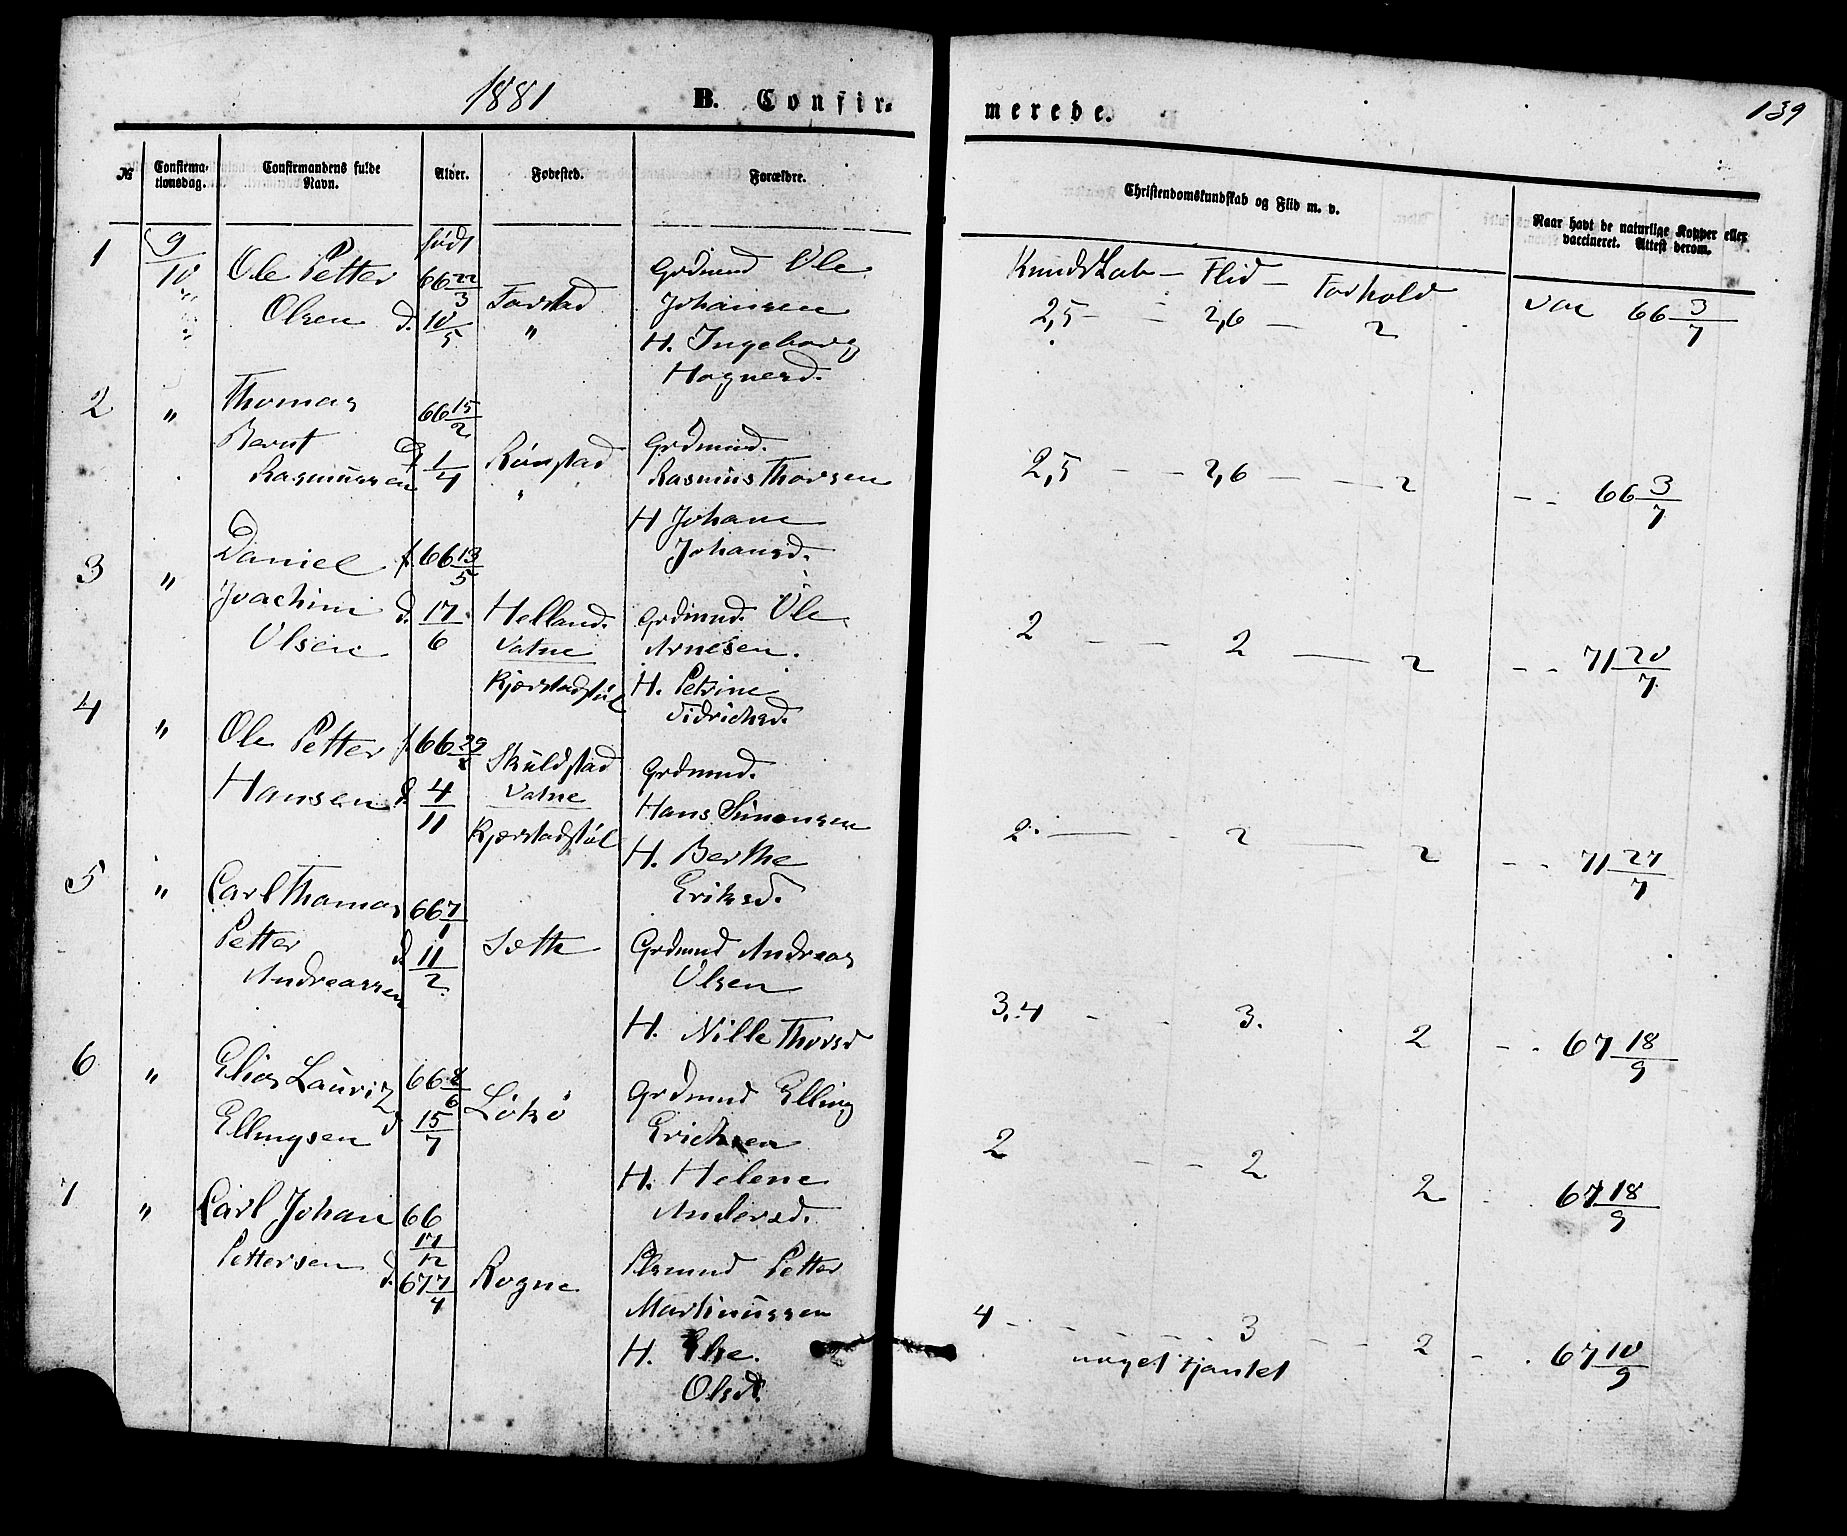 1881 B. Confir-
merede. 139
№ Confirma-tionsdag. Confirmandens fulde Navn. Alder. Fødested. Forældre.
Christendomskundskab og Flid m. v. Naar havt de naturlige Kopper eller vaccineret. Attest derom.
1 9/10 Ole Petter født 66 22/3 Farstad Grdmand Ole
Olsen d. 10/5 " Johansen
H. Ingeborg
Hognesd.
Kundskab – Flid – Forhold
2,5 – – 2,6 – 2 vac 66 3/7
2 " Thomas 66 15/2
Bernt Rønstad Grdmand.
Rasmussen 1/4 " Rasmus Thorsen
H Johane
Johansd.
2,5 – – 2,6 – – 2 – – 66 3/7
3 " Daniel f. 66 13/5
Joachim d. 17/6 Helland. Grdmand. Ole
Olsen Vatne Arnesen.
Kjærstadstøl H. Petrine
Didrichsd.
2 – – 2 – 2 – – 71 20/7
4 " Ole Petter f. 66 Skuldstad Grdmand.
Hansen d. 4/11 Vatne Hans Simonsen
Kjærstadstøl H. Berthe
Eriksd.
2. – – 2 – 2 – – 71 27/7
5 " Carl Thomas 66 7/1
Petter d. 11/2 Sætte Grdmand Andreas
Andreassen Olsen
H. Nille Thorsd
3,4 – – 3. 2 – – 67 18/9
6 " Elias Lauritz 66 8/6 Løkø Grdmand Elling
Ellingsen d 15/7 Ericksen
H. Helene
Andersd.
2 – – 2 2 – 67 18/9
7 " Carl Johan 66 17/12
Pettersen d. 67 7/4 Rogne Plsmand Petter
Martinussen
H. Else.
Olsd.
4 – – – – 3 – – 2 – . 67 10/9
noget tjantet